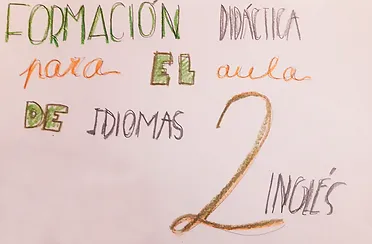 FORMACIÓN DIDÁCTICA
para EL aula
DE IDIOMAS 2
INGLÉS